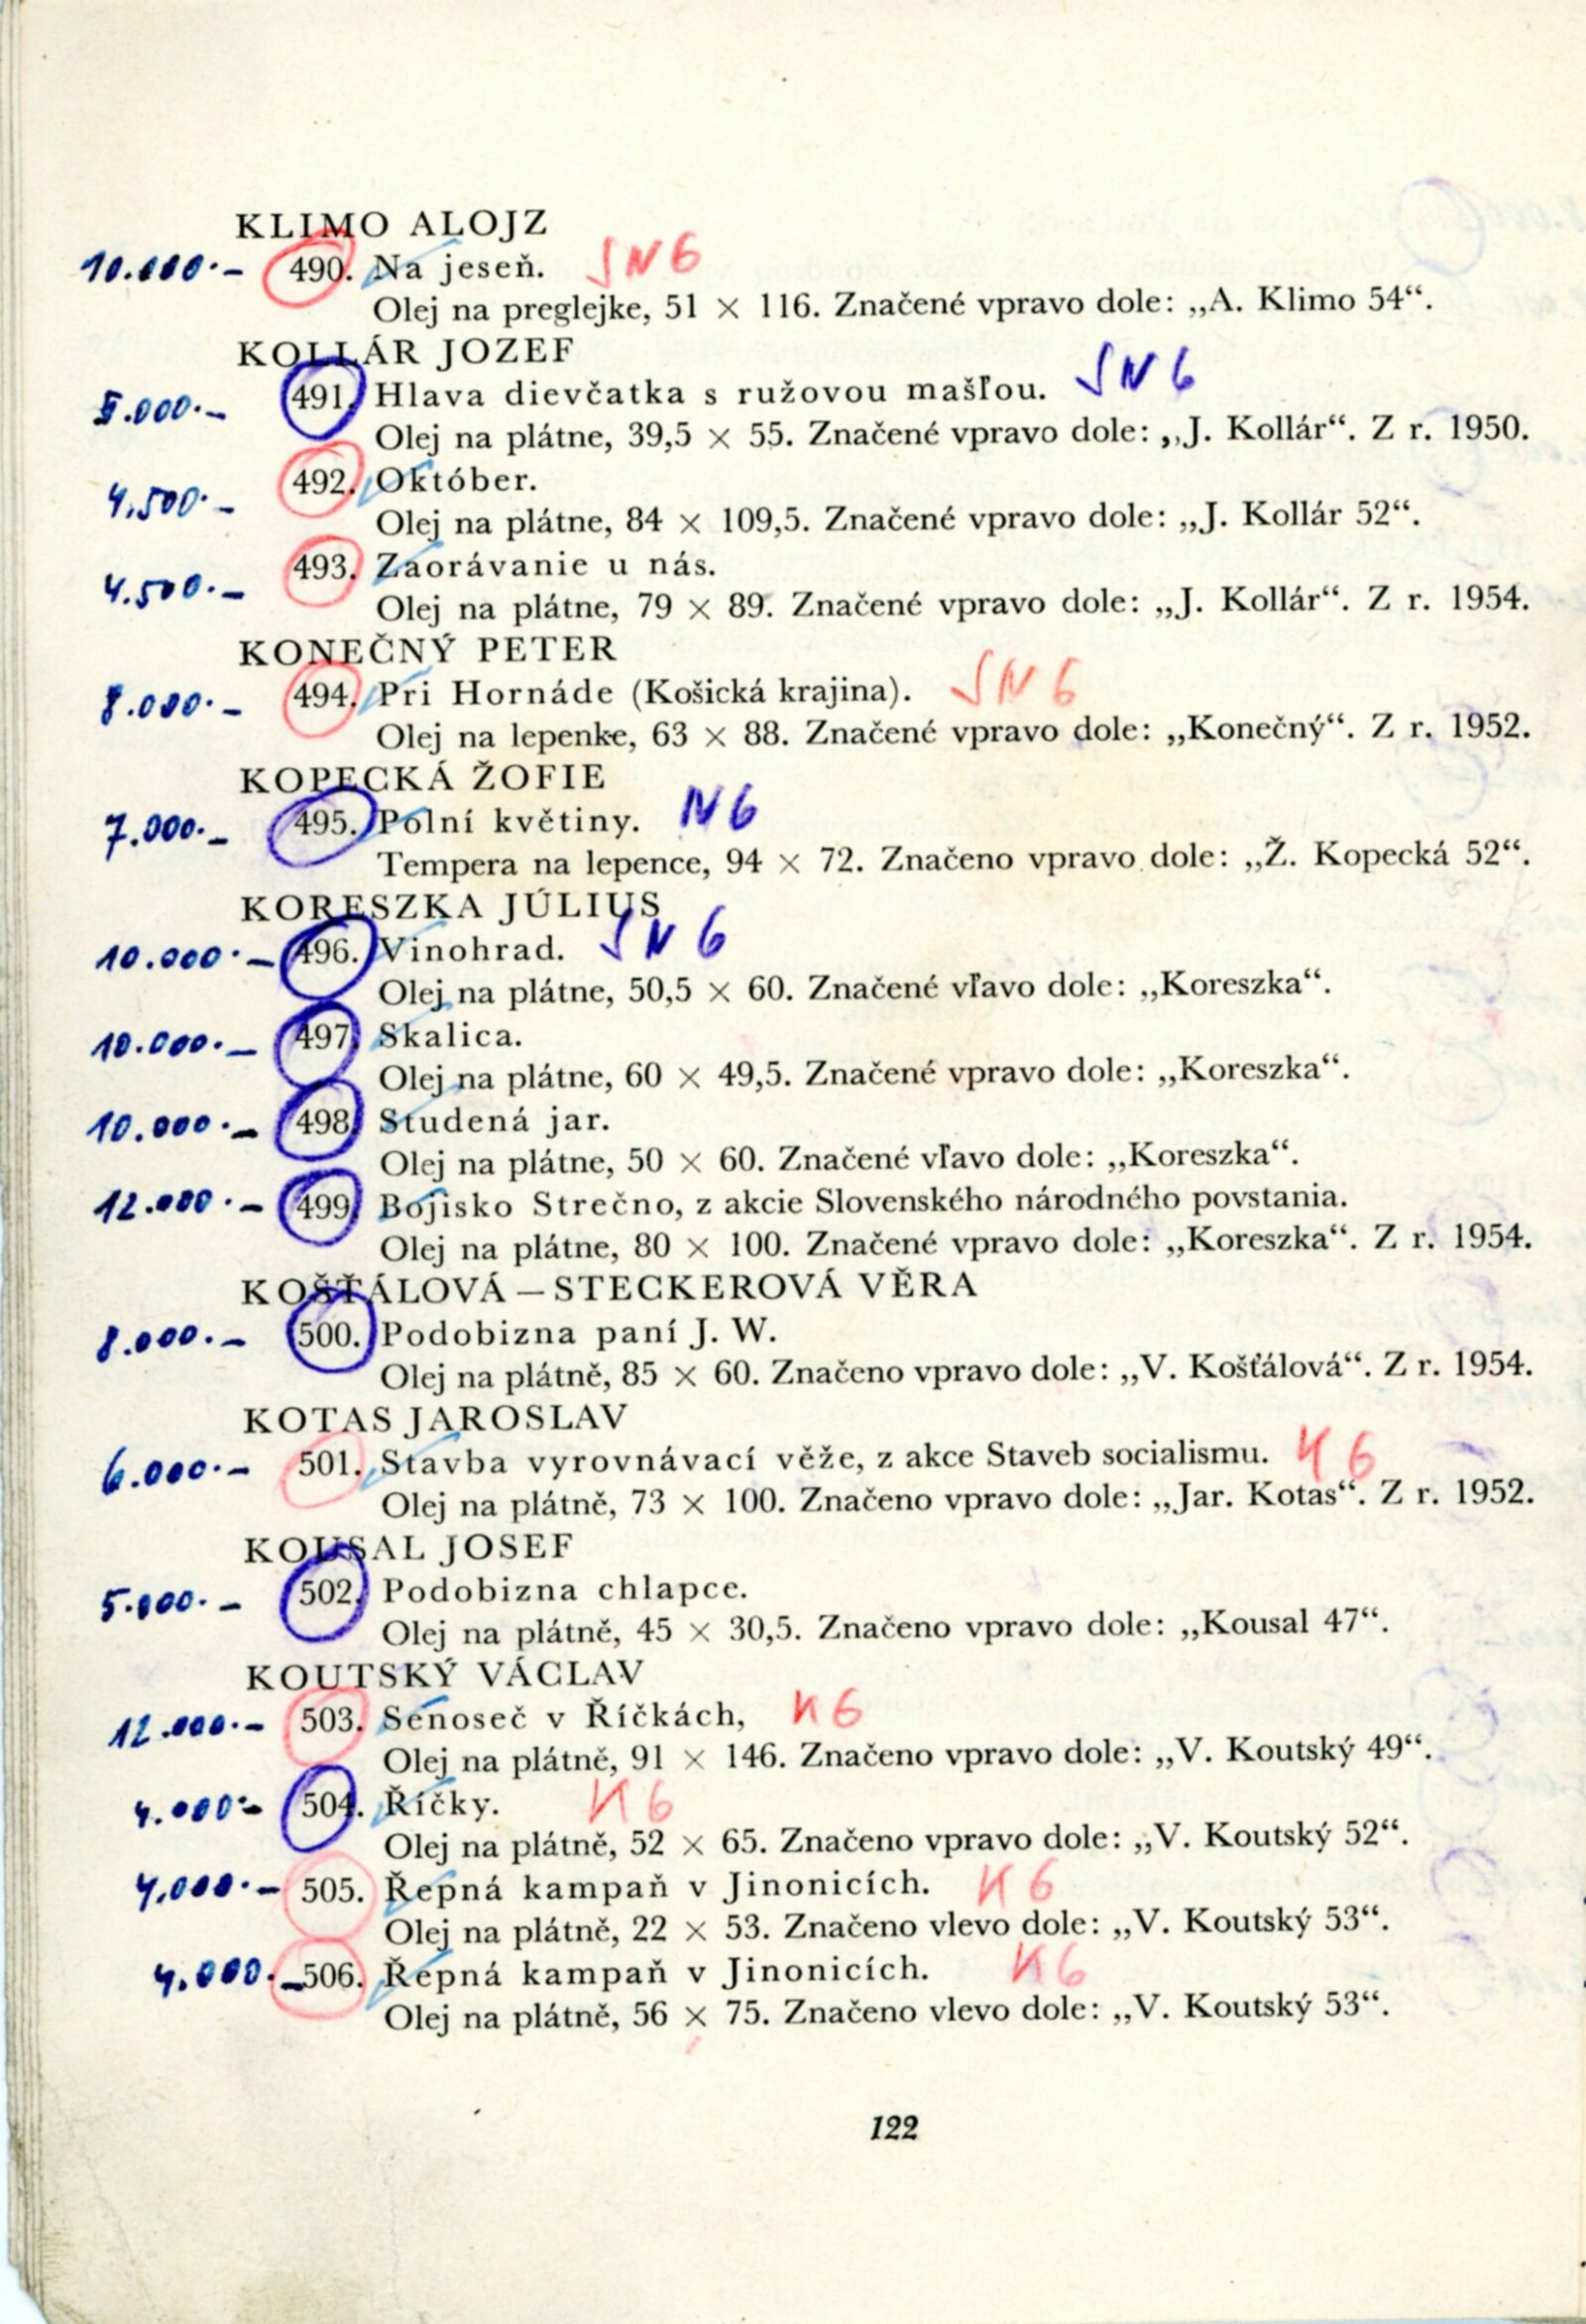 KLIMO ALOJZ
10.000.— 490. Na jeseň. SNG
Olej na preglejke, 51 × 116. Značené vpravo dole: „A. Klimo 54“.
KOLLÁR JOZEF
5.000.— 491. Hlava dievčatka s ružovou mašľou. SNG
Olej na plátne, 39,5 × 55. Značené vpravo dole: „J. Kollár“. Z r. 1950.
4.500.— 492. Október.
Olej na plátne, 84 × 109,5. Značené vpravo dole: „J. Kollár 52“.
4.500.— 493. Zaorávanie u nás.
Olej na plátne, 79 × 89. Značené vpravo dole: „J. Kollár“. Z r. 1954.
KONEČNÝ PETER
8.000.— 494. Pri Hornáde (Košická krajina). SNG
Olej na lepenke, 63 × 88. Značené vpravo dole: „Konečný“. Z r. 1952.
KOPECKÁ ŽOFIE
7.000.— 495. Polní květiny. NG
Tempera na lepence, 94 × 72. Značeno vpravo dole: „Ž. Kopecká 52“.
KORESZKA JÚLIUS
10.000.— 496. Vinohrad. SNG
Olej na plátne, 50,5 × 60. Značené vľavo dole: „Koreszka“.
10.000.— 497. Skalica.
Olej na plátne, 60 × 49,5. Značené vpravo dole: „Koreszka“.
10.000.— 498. Studená jar.
Olej na plátne, 50 × 60. Značené vľavo dole: „Koreszka“.
12.000.— 499. Bojisko Strečno, z akcie Slovenského národného povstania.
Olej na plátne, 80 × 100. Značené vpravo dole: „Koreszka“. Z r. 1954.
KOŠŤÁLOVÁ — STECKEROVÁ VĚRA
8.000.— 500. Podobizna paní J. W.
Olej na plátně, 85 × 60. Značeno vpravo dole: „V. Košťálová“. Z r. 1954.
KOTAS JAROSLAV
6.000.— 501. Stavba vyrovnávací věže, z akce Staveb socialismu. KG
Olej na plátně, 73 × 100. Značeno vpravo dole: „Jar. Kotas“. Z r. 1952.
KOUSAL JOSEF
5.000.— 502. Podobizna chlapce.
Olej na plátně, 45 × 30,5. Značeno vpravo dole: „Kousal 47“.
KOUTSKÝ VÁCLAV
12.000.— 503. Senoseč v Říčkách, KG
Olej na plátně, 91 × 146. Značeno vpravo dole: „V. Koutský 49“.
4.000.— 504. Říčky. KG
Olej na plátně, 52 × 65. Značeno vpravo dole: „V. Koutský 52“.
4.000.— 505. Řepná kampaň v Jinonicích. KG
Olej na plátně, 22 × 53. Značeno vlevo dole: „V. Koutský 53“.
4.000.— 506. Řepná kampaň v Jinonicích. KG
Olej na plátně, 56 × 75. Značeno vlevo dole: „V. Koutský 53“.
122